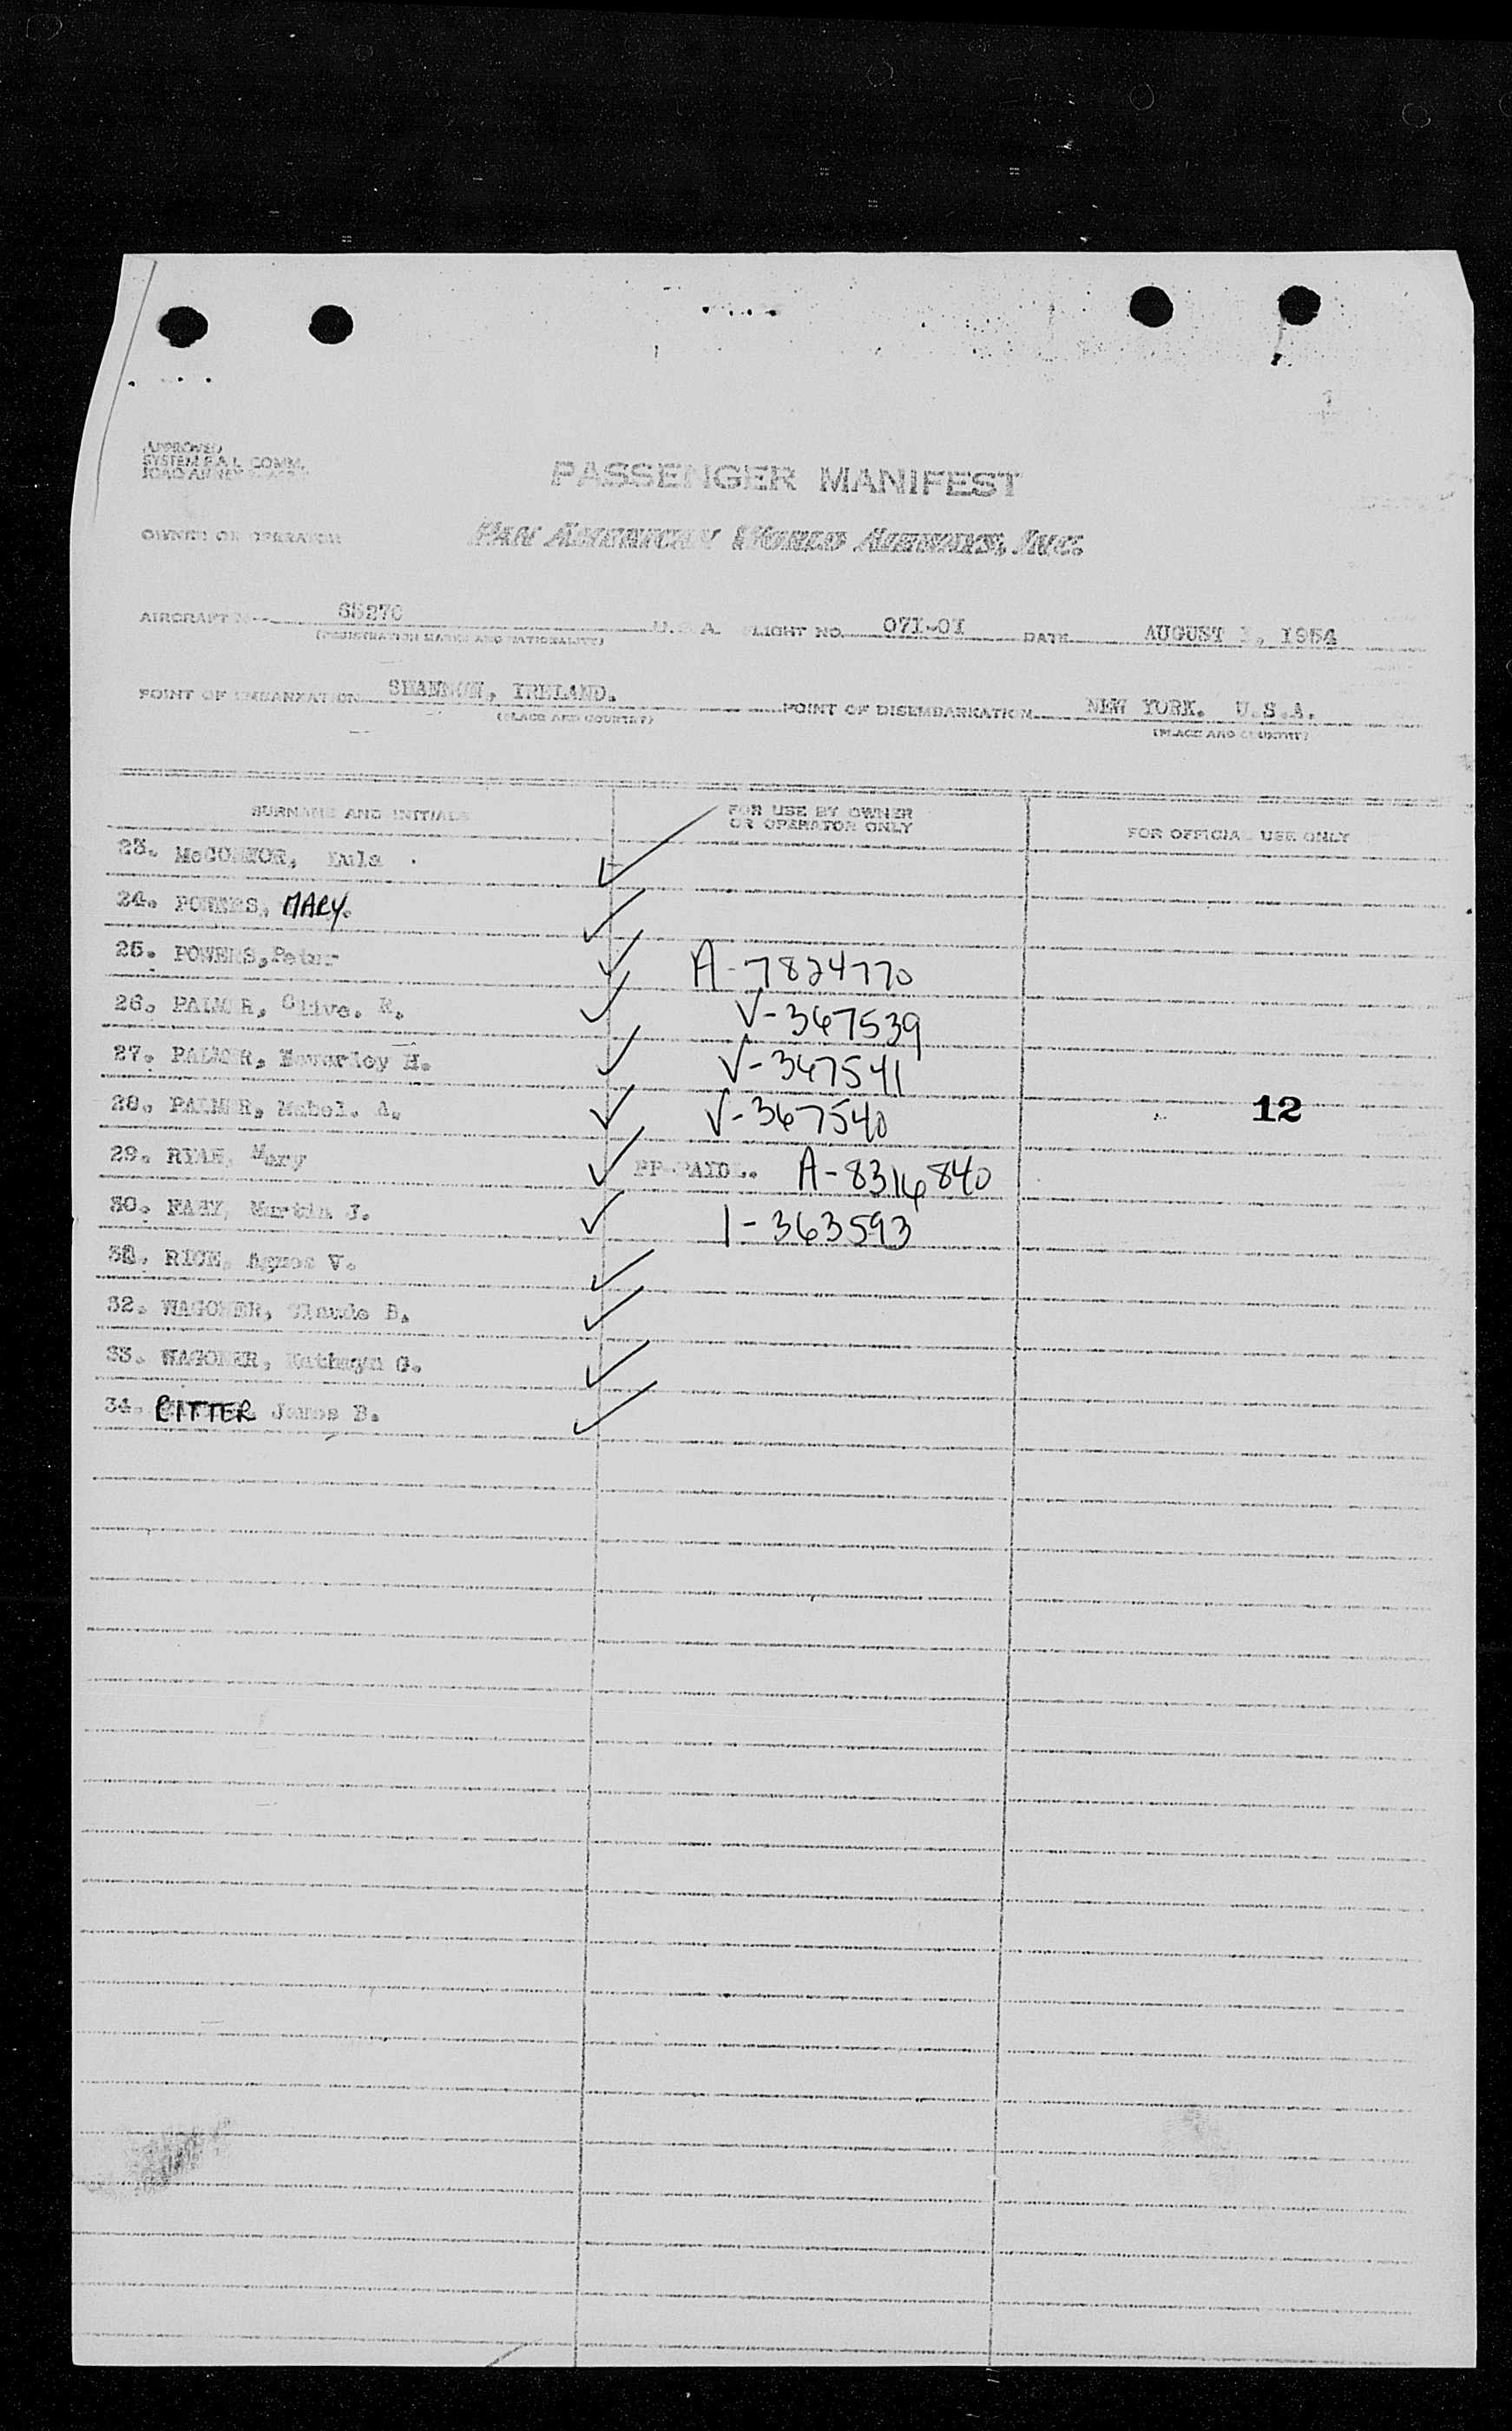 APPROVED
SYSTEM F.A.L. COMM.
PASSENGER MANIFEST
OWNER OR OPERATOR PAN AMERICAN WORLD AIRWAYS, INC.
AIRCRAFT 65270 U.S.A. FLIGHT NO. 071-01 DATE AUGUST 1954
(REGISTRATION MARKS AND NATIONALITY)
POINT OF EMBARKATION SHANNON, IRELAND. POINT OF DISEMBARKATION NEW YORK. U.S.A.
(PLACE AND COUNTRY) (PLACE AND COUNTRY)
SURNAME AND INITIALS FOR USE BY OWNER OR OPERATOR ONLY FOR OFFICIAL USE ONLY
23. McCONNOR, Eula ✓
24. POWERS, MARY. ✓
25. POWERS, Peter ✓ A-7824770
26. PALMER, Olive. E. ✓ V-367539
27. PALMER, Beverley H. ✓ V-367541
28. PALMER, Mabel. A. ✓ V-367540 12
29. Mary ✓ A-8316840
30. FAHY, Martin J. ✓ 1-363593
31. RICE, Agnes V. ✓
32. WAGONER, Claude B. ✓
33. WAGONER, Kathryn G. ✓
34. RITTER James B. ✓